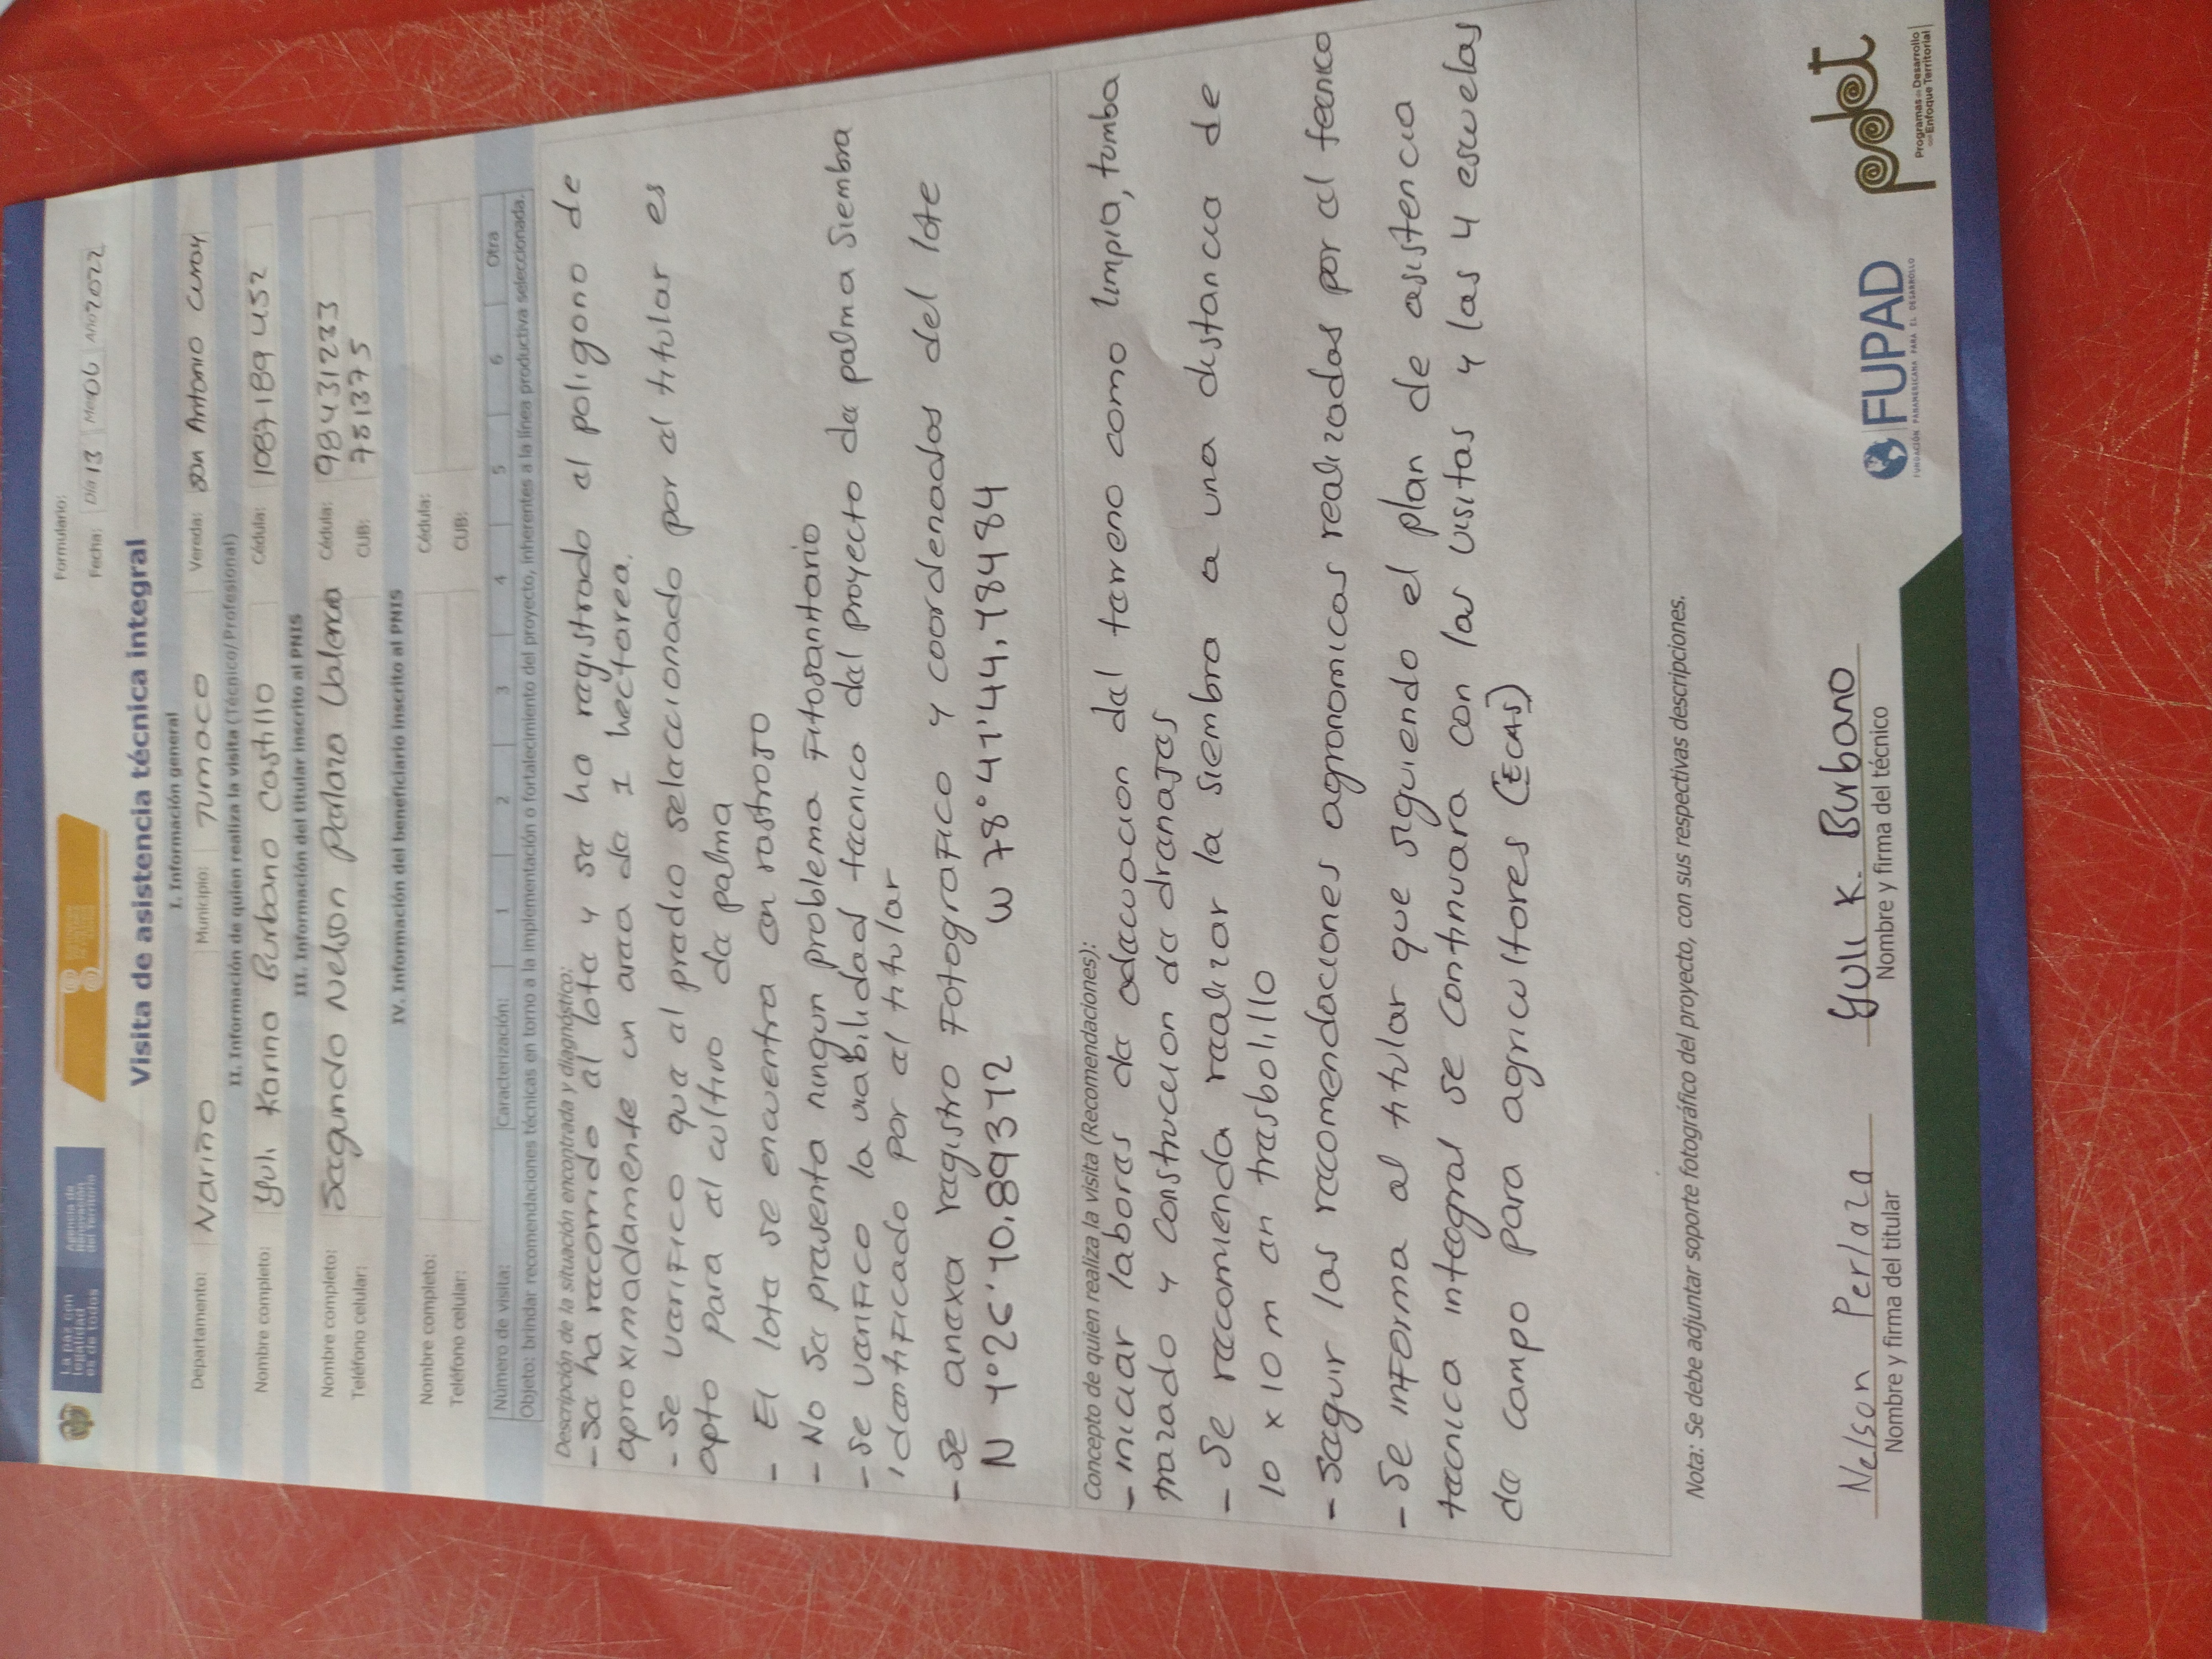 La paz con
legalidad
es de todos
Agencia de
Renovación
del Territorio
Formulario:
Fecha: Día 13 Mes 06 Año 2022
Visita de asistencia técnica integral
I. Información general
Departamento: Nariño Municipio: Tumaco Vereda: San Antonio Curay
II. Información de quien realiza la visita (Técnico/Profesional)
Nombre completo: Yuli Karina Burbano Castillo Cédula: 1087189452
III. Información del titular inscrito al PNIS
Nombre completo: Segundo Nelson Perlaza Valencia Cédula: 98431233
Teléfono celular: CUB: 781375
IV. Información del beneficiario inscrito al PNIS
Nombre completo: Cédula:
Teléfono celular: CUB:
Número de visita: Caracterización: 1 2 3 4 5 6 Otra
Objeto: brindar recomendaciones técnicas en torno a la implementación o fortalecimiento del proyecto, inherentes a la línea productiva seleccionada.
Descripción de la situación encontrada y diagnóstico:
- Se ha recorrido el lote y se ha registrado el poligono de
aproximadamente un area de 1 hectarea.
- Se verifico que el predio seleccionado por el titular es
apto para el cultivo de palma
- El lote se encuentra en rastrojo
- No se presenta ningun problema Fitosanitario
- se verifico la viabilidad tecnico del proyecto de palma siembra
identificado por el titular
- Se anexa registro Fotografico y coordenadas del lote
N 1°26'10.89312 W 78°41'44.18484
Concepto de quien realiza la visita (Recomendaciones):
- iniciar labores de adecuacion del terreno como limpia, tumba
trazado y construccion de drenajes
- Se recomienda realizar la siembra a una distancia de
10 x 10 m en tresbolillo
- seguir las recomendaciones agronomicas realizadas por el tecnico
- Se informa al titular que siguiendo el plan de asistencia
tecnica integral se continuara con las visitas y las 4 escuelas
de campo para agricultores (ECAS)
Nota: Se debe adjuntar soporte fotográfico del proyecto, con sus respectivas descripciones.
Nelson Perlaza Yuli K. Burbano
Nombre y firma del titular Nombre y firma del técnico
FUPAD
FUNDACIÓN PANAMERICANA PARA EL DESARROLLO
pdet
Programas de Desarrollo
con Enfoque Territorial